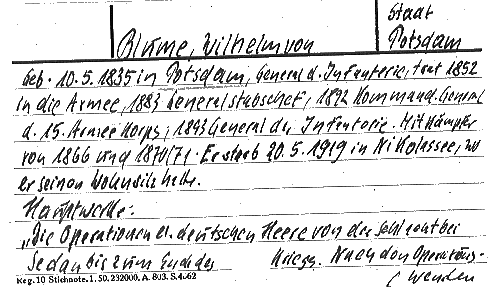 Staat
Blume, Wilhelm von Potsdam
Geb. 10.5.1835 in Potsdam, General d. Infanterie, trat 1852
in die Armee, 1883 Generalstabschef, 1892 Kommand. General
d. 15. Armee Korps, 1893 General der Infanterie. Mitkämpfer
von 1866 und 1870/71. Er starb 20.5.1919 in Nikolassee, wo
er seinen Wohnsitz hatte.
Hauptwerke:
„Die Operationen d. deutschen Heere von der Schlacht bei
Sedan bis zum Ende des Kriegs. Nach den Operations-
(wenden
Reg. 10 Stichnote. 1. 50. 232000. A. 803. S. 4062